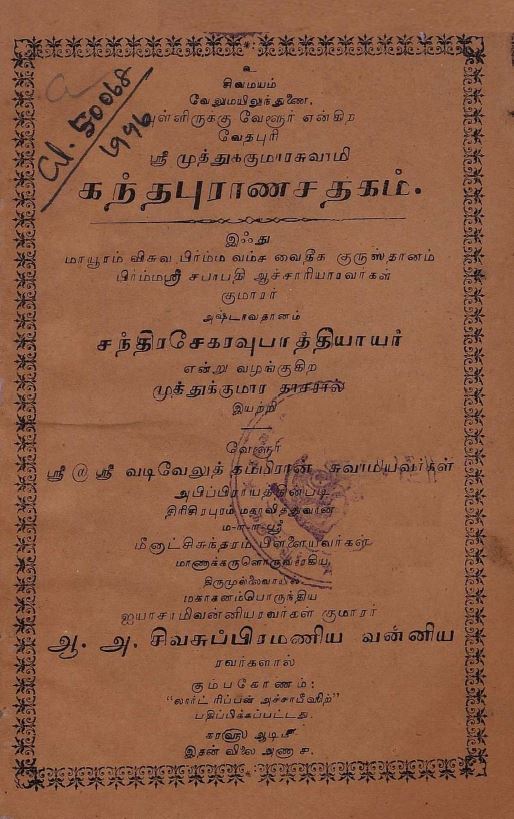 உ
சிவமயம்
வேலுமயிலுந்துணை.
புள்ளிருக்கு வேளூர் என்கிற
வேதபுரி
ஸ்ரீ முத்துக்குமாரசுவாமி
கந்தபுராணசதகம்.
இஃது
மாயூரம் விசுவ பிர்ம்ம வம்ச வைதீக குருஸ்தானம்
பிர்ம்மஸ்ரீ சபாபதி ஆச்சாரியாரவர்கள்
குமாரர்
அஷ்டாவதானம்
சந்திரசேகரவுபாத்தியாயர்
என்று வழங்குகிற
முத்துக்குமார தாசரால்
இயற்றி
வேளூர்
ஸ்ரீ வடிவேலுத் தம்பிரான் சுவாமியவர்கள்
அபிப்பிராயத்தின்படி
திரிசிரபுரம் மகாவித்துவான்
ம-ா-ா-ஸ்ரீ
மீனாட்சிசுந்தரம் பிள்ளையவர்கள்
மாணாக்கருளொருவராகிய
திருமுல்லைவாயில்
மகாகனம்பொருந்திய
ஐயாசாமிவன்னியரவர்கள் குமாரர்
ஆ. அ. சிவசுப்பிரமணிய வன்னிய
ரவர்களால்
கும்பகோணம்:
"லார்ட் ரிப்பன் அச்சாபீஸில்"
பதிப்பிக்கப்பட்டது.
கரஹு ஆடிமீ
இதன் விலை அணா ச.
Cl. 50068
1996